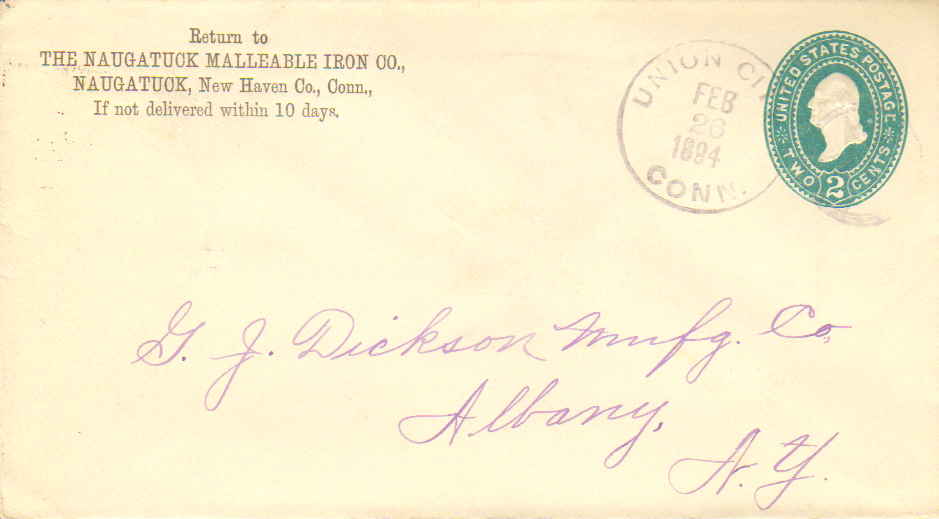 Return to
THE NAUGATUCK MALLEABLE IRON CO.,
NAUGATUCK, New Haven Co., Conn.,
If not delivered within 10 days.
UNION CI
FEB
26
1894
CONN.
UNITED STATES POSTAGE
TWO 2 CENTS
G. J. Dickson Mnfg. Co,
Albany,
N. Y.